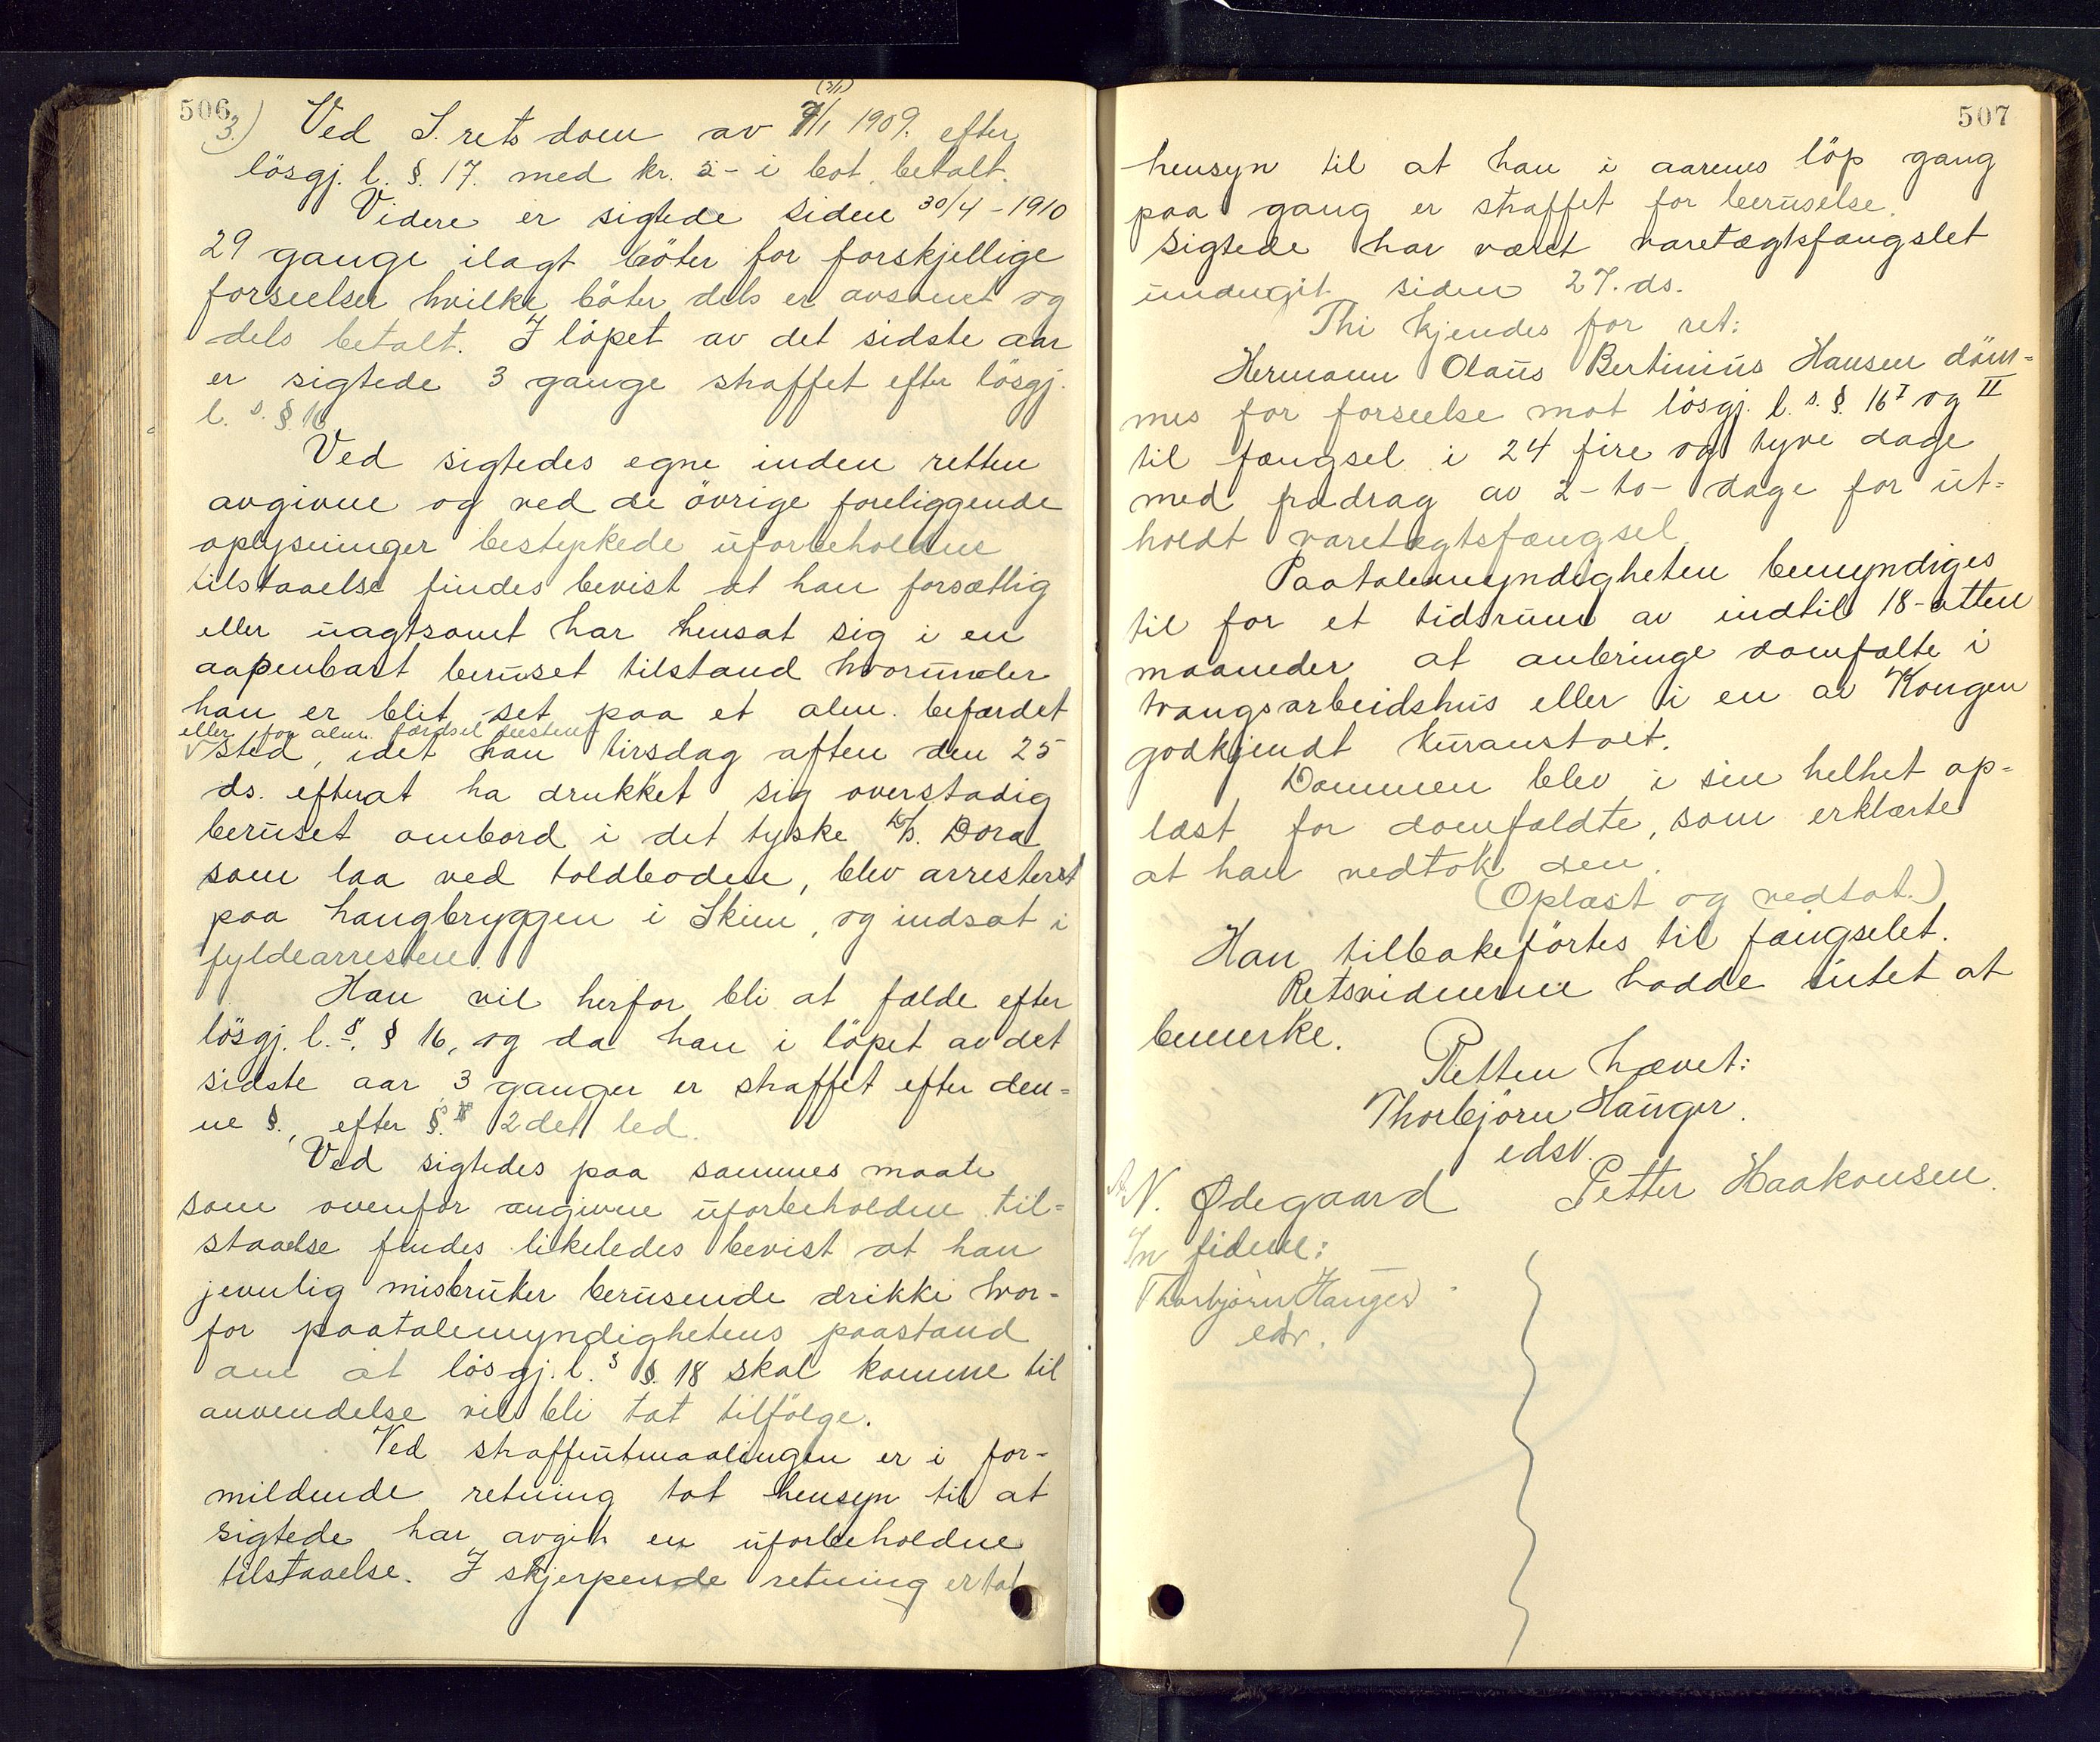 506
3.) Ved S. rets dom av 9/1 (3/1) 1909. efter
lösgj. l. §. 17. med kr. 5- i bot. betalt.
Videre er sigtede siden 30/4 - 1910
29 gange ilagt böter for forskjellige
forseelser hvilke böter dels er avsonet og
dels betalt. I löpet av det sidste aar
er sigtede 3 gange straffet efter lösgj.
l. s. §. 16.
Ved sigtedes egne inden retten
avgivne og ved de övrige foreliggende
oplysninger bestyrkede uforbeholdne
tilstaaelse findes bevist at han forsætlig
eller uagtsomt har hensat sig i en
aapenbart beruset tilstand hvorunder
han er blit set paa et alm. befærdet
eller for alm. færdsel bestemt
sted, idet han tirsdag aften den 25
ds. efterat ha drukket sig overstadig
beruset ombord i det tyske D/s. Dora
som laa ved toldboden, blev arresteret
paa haugbryggen i Skien, og indsat i
fyldearresten.
Han vil herfor bli at fælde efter
lösgj. l. s. § 16, og da han i löpet av det
sidste aar 3 ganger er straffet efter den-
ne §., efter §. s 2det led.
Ved sigtedes paa sammes maate
som ovenfor avgivne uforbeholdne til-
staaelse findes likeledes bevist at han
jevnlig misbruker berusende drikke hvor-
for paatalemyndighetens paastand
om at lösgj. l. s §. 18 skal komme til
anvendelse vil bli tat tilfölge.
Ved straffeutmaalingen er i for-
mildende retning tat hensyn til at
sigtede har avgit en uforbeholdne
tilstaaelse. I skjerpende retning er tat
507
hensyn til at han i aarenes löp gang
paa gang er straffet for beruselse.
Sigtede har været varetægtsfængslet
undergit siden 27. ds.
Thi kjendes for ret:
Hermann Olaus Bertinius Hansen döm-
mes for forseelse mot lösgj. l. s. §. 16 I og II
til fængsel i 24 fire og tyve dage
med fradrag av 2-to- dage for ut-
holdt varetægtsfængsel.
Paatalemyndigheten bemyndiges
til for et tidsrum av indtil 18-atten
maaneder at anbringe domfælte i
tvangsarbeidshus eller i en av Kongen
godkjendt kuranstalt.
Dommen blev i sin helhet op-
læst for domfældte, som erklærte
at han vedtok den.
(Oplæst og vedtat.)
Han tilbakeförtes til fængselet.
Retsvidnerne hadde intet at
bemerke.
Retten hævet:
Thorbjörn Hauger.
edsv.
A. N. Ødegaard Petter Haakonsen.
In fidem:
Thorbjörn Hauger
edv.